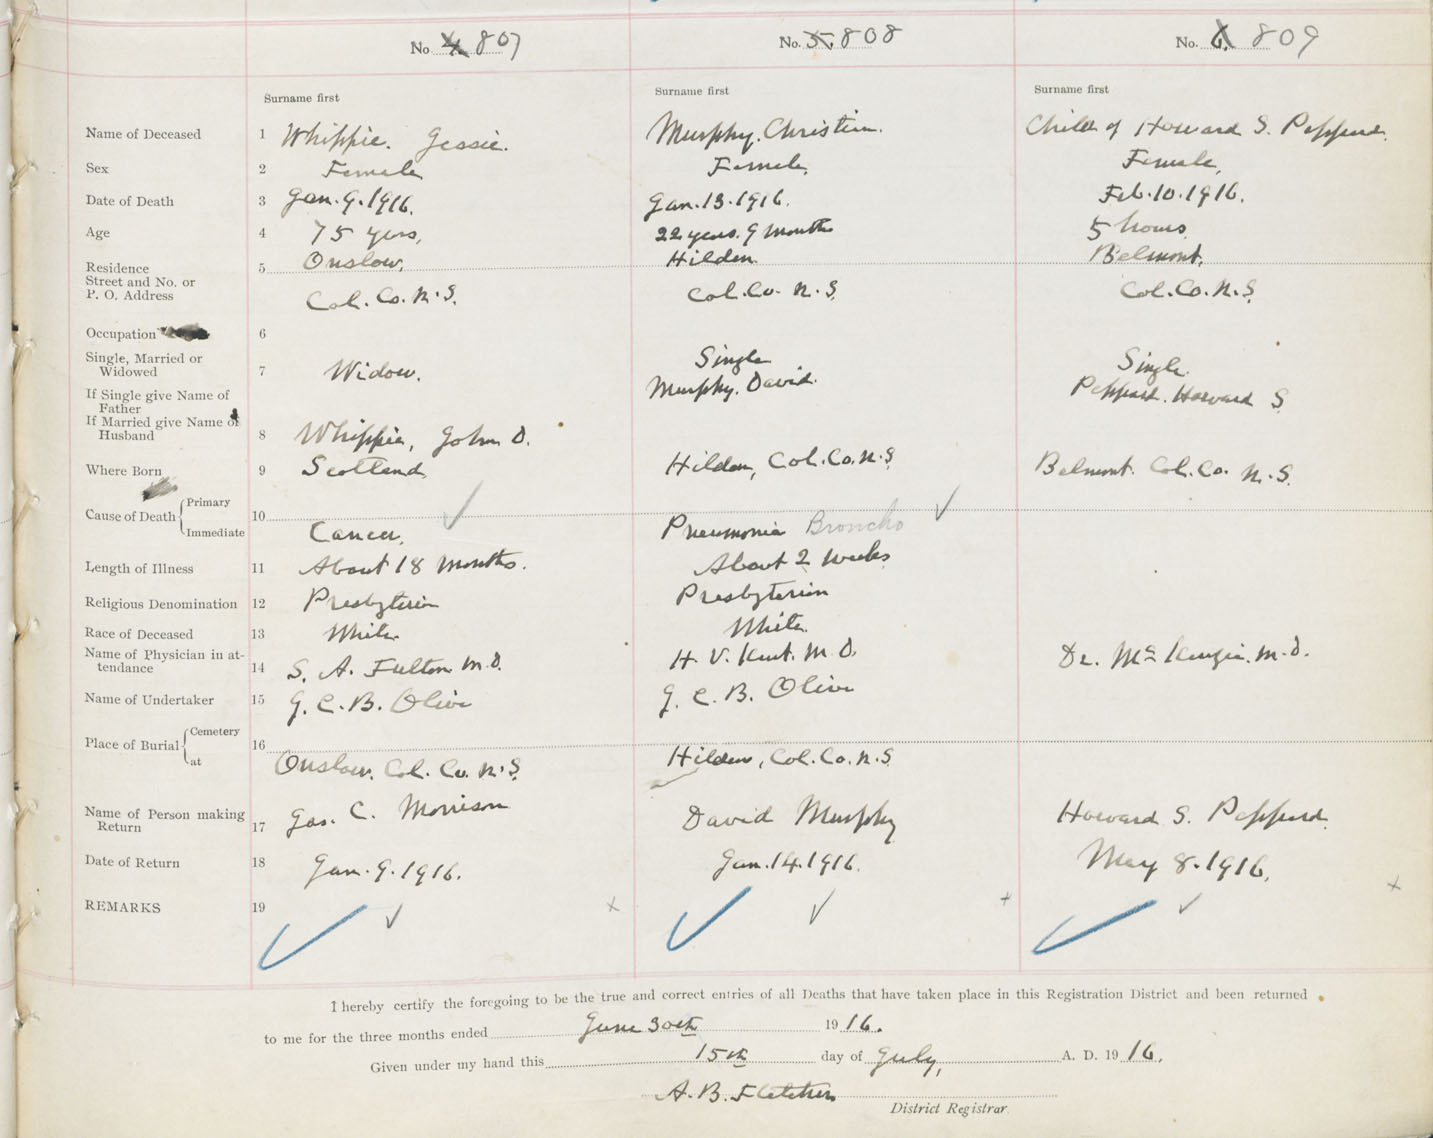 No. 4. 807 No. 5. 808 No. 6. 809
Surname first Surname first Surname first
Name of Deceased 1 Whippie. Jessie. Murphy. Christien. Child of Howard S. Peppard.
Sex 2 Female Female, Female,
Date of Death 3 Jan. 9. 1916. Jan. 13. 1916. Feb. 10. 1916.
Age 4 75 years, 22 years. 9 months 5 hours
Residence 5 Onslow, Hilden Belmont,
Street and No. or
P. O. Address Col. Co. N. S. Col. Co. N. S. Col. Co. N. S.
Occupation 6
Single, Married or
Widowed 7 Widow. Single Single
If Single give Name of
Father Murphy. David. Peppard. Howard S
If Married give Name of
Husband 8 Whippie, John D.
Where Born 9 Scotland Hilden, Col. Co. N. S Belmont. Col. Co. N. S.
Cause of Death { Primary
10
Immediate Cancer. Pneumonia Broncho
Length of Illness 11 About 18 Months. About 2 weeks
Religious Denomination 12 Presbyterin Presbyterin
Race of Deceased 13 White White
Name of Physician in at-
tendance 14 S. A. Fulton M.D. H. V. Kent. M.D. Dr. McKenzie. M.D.
Name of Undertaker 15 J. C. B. Olive J. C. B. Olive
Place of Burial { Cemetery
16
at Onslow. Col. Co. N. S. Hilden, Col. Co. N. S
Name of Person making
Return 17 Jas. C. Morrison David Murphy Howard S. Peppard.
Date of Return 18 Jan. 9. 1916. Jan. 14. 1916. May 8. 1916.
REMARKS 19
I hereby certify the foregoing to be the true and correct entries of all Deaths that have taken place in this Registration District and been returned
to me for the three months ended June 30th 1916.
Given under my hand this 15th day of July, A. D. 1916.
A. B. Fletcher
District Registrar.